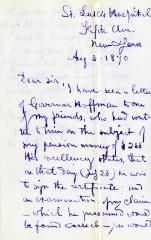 St. Luke's Hospital
Fifth Ave.
New York
Aug 3. 1870
Dear Sir,
I have seen a letter
of Governor Hoffman to one
of my friends, who had writ
to him on the subject of
my pension money of $233
His excellency states, that
on that day he was
to sign the certificate and
an examination of my claim
— which he presumed would
be found correct —